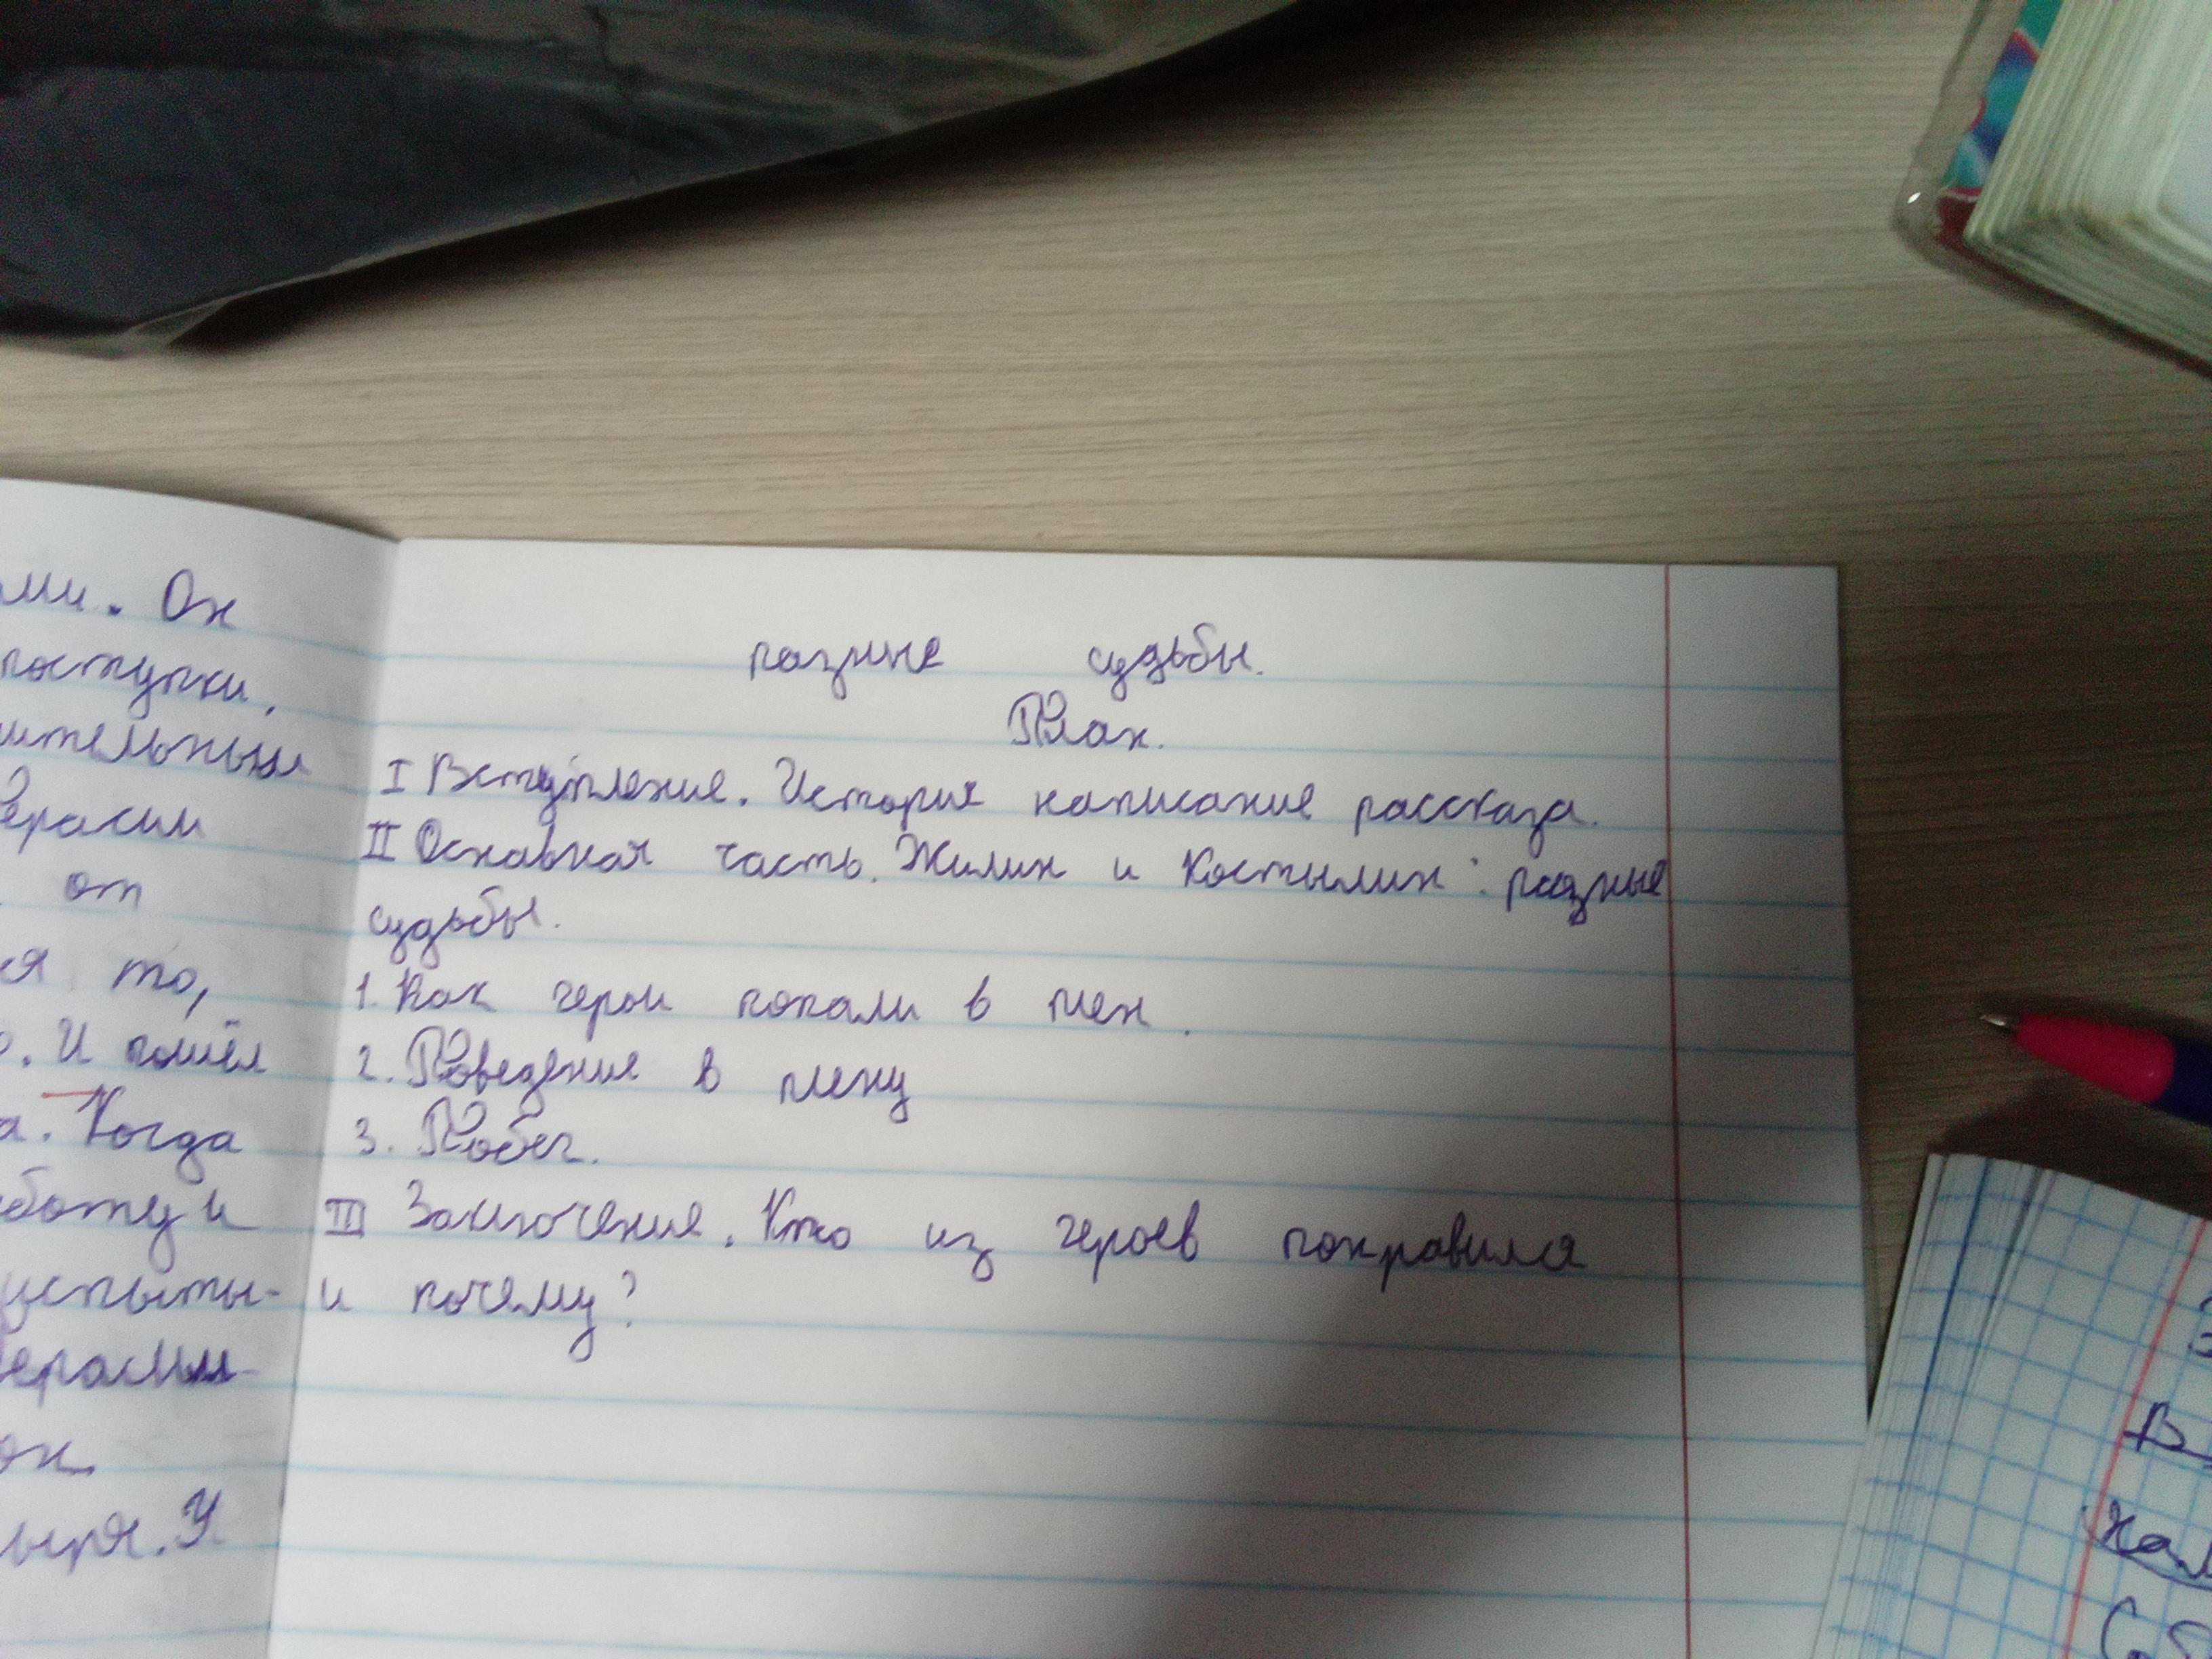 ми. Он
поступки.
ительным
Герасим
от
ся то,
о. И пошёл
а. Когда
аботу и
испыты-
Герасим
он.
ыря. У
разные судьбы.
План.
I Вступление. История написания рассказа.
II Основная часть. Жилин и Костылин: разные
судьбы.
1. Как герои попали в плен.
2. Поведение в плену
3. Побег.
III Заключение. Кто из героев понравился
и почему?
В